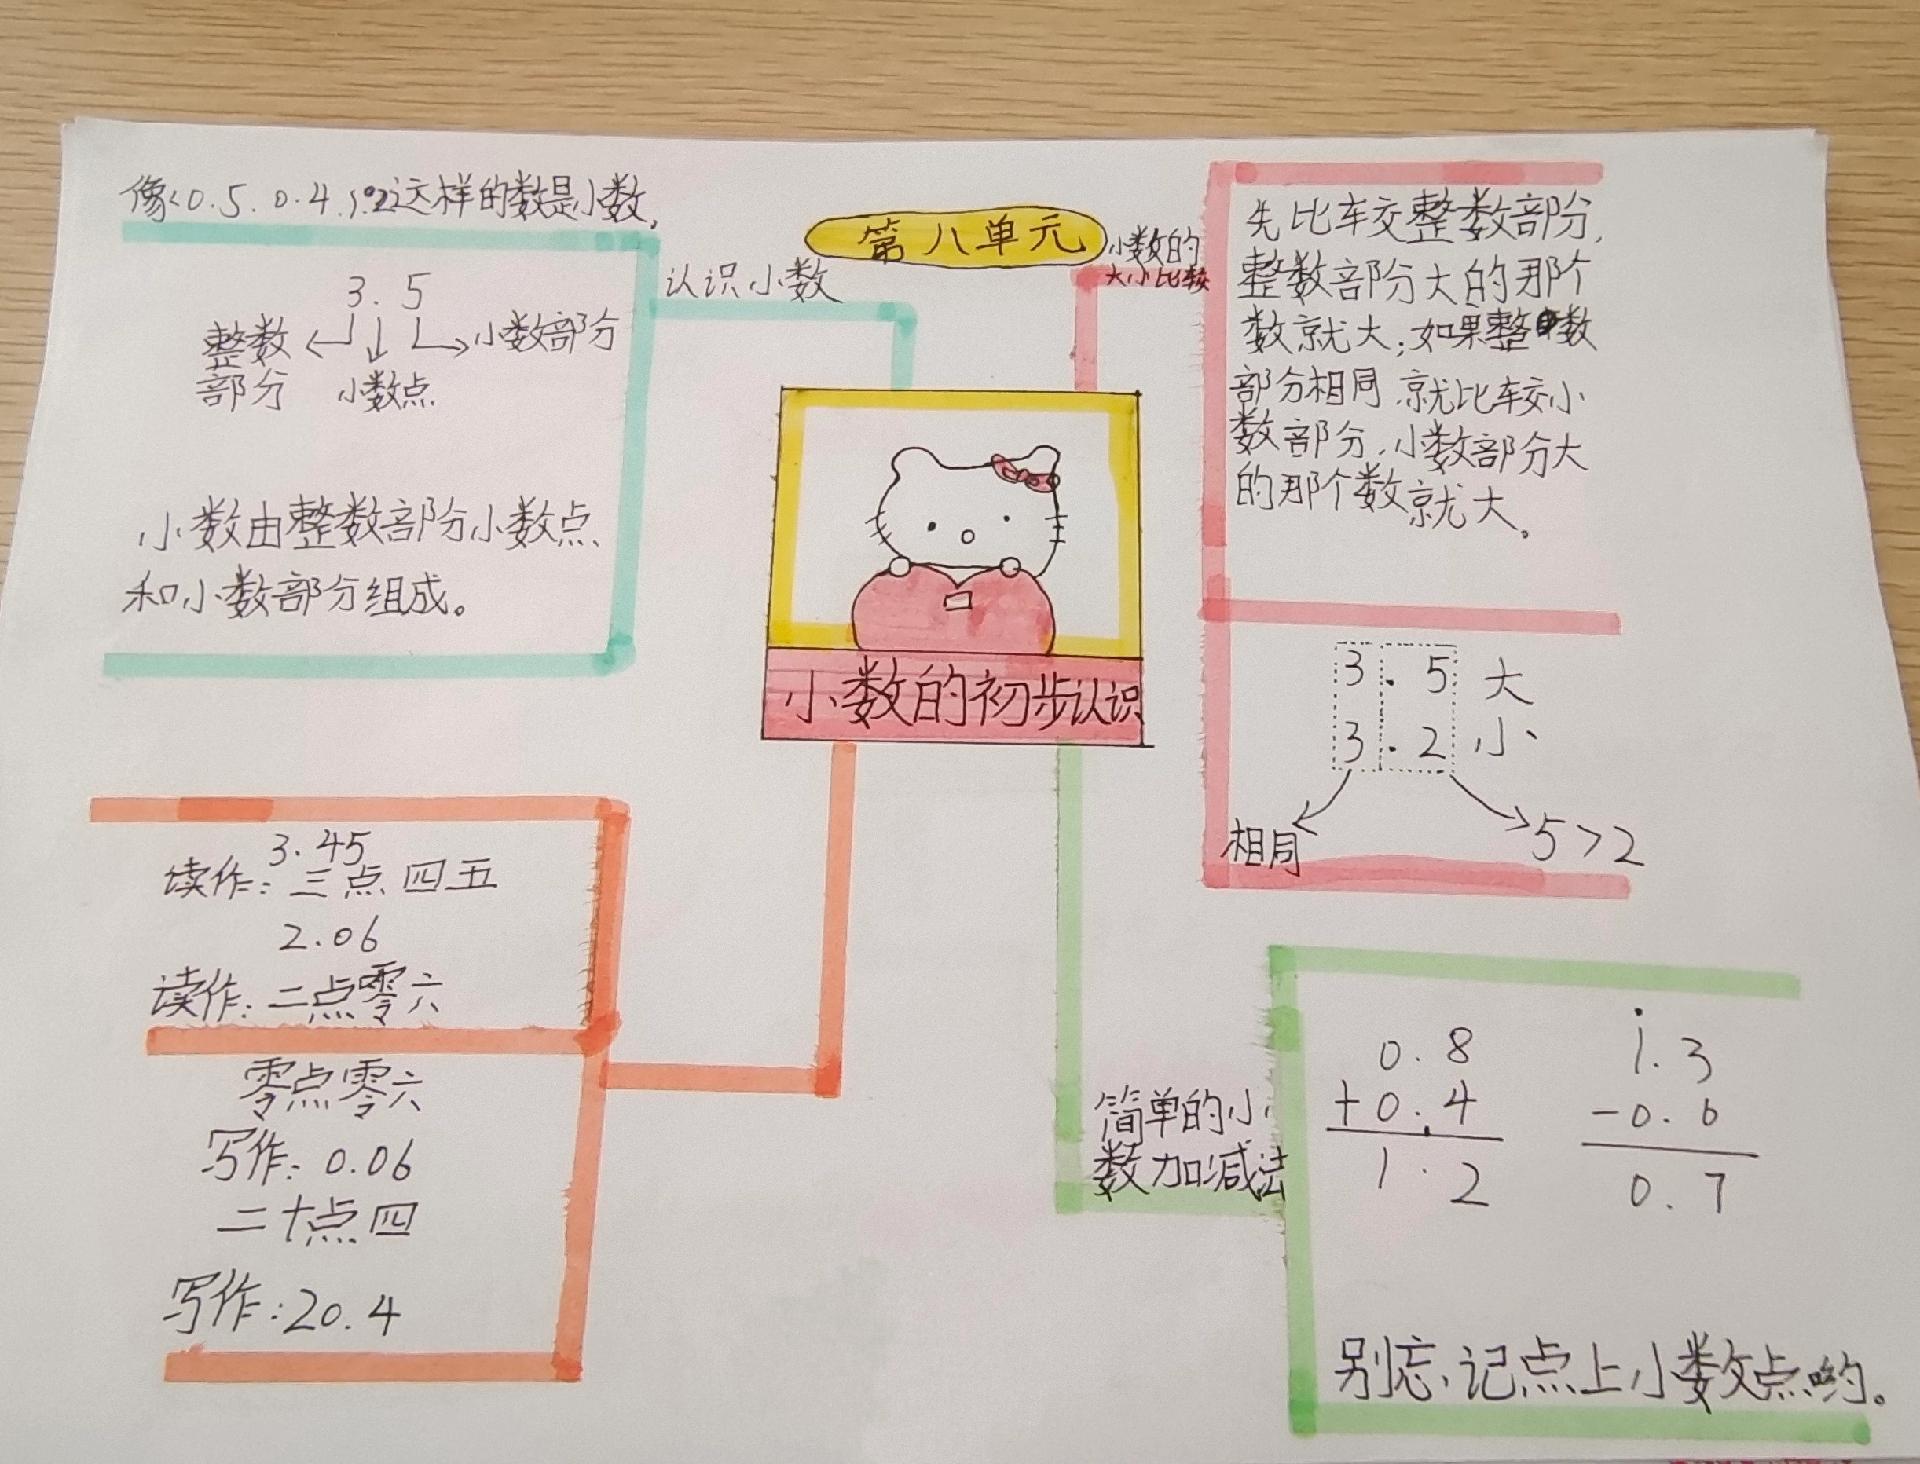 第八单元
像<0.5.0.4.1.2这样的数是小数.
认识小数
3.5
整数
部分
小数点
小数部分
小数由整数部分小数点
和小数部分组成。
小数的
大小比较
先比较整数部分,
整数部分大的那个
数就大;如果整数
部分相同.就比较小
数部分,小数部分大
的那个数就大。
3.5 大
3.2 小
相同
5>2
小数的初步认识
3.45
读作:三点四五
2.06
读作:二点零六
零点零六
写作:0.06
二十点四
写作:20.4
简单的小
数加减法
0.8
+0.4
1.2
1.3
-0.6
0.7
别忘记点上小数点哟。